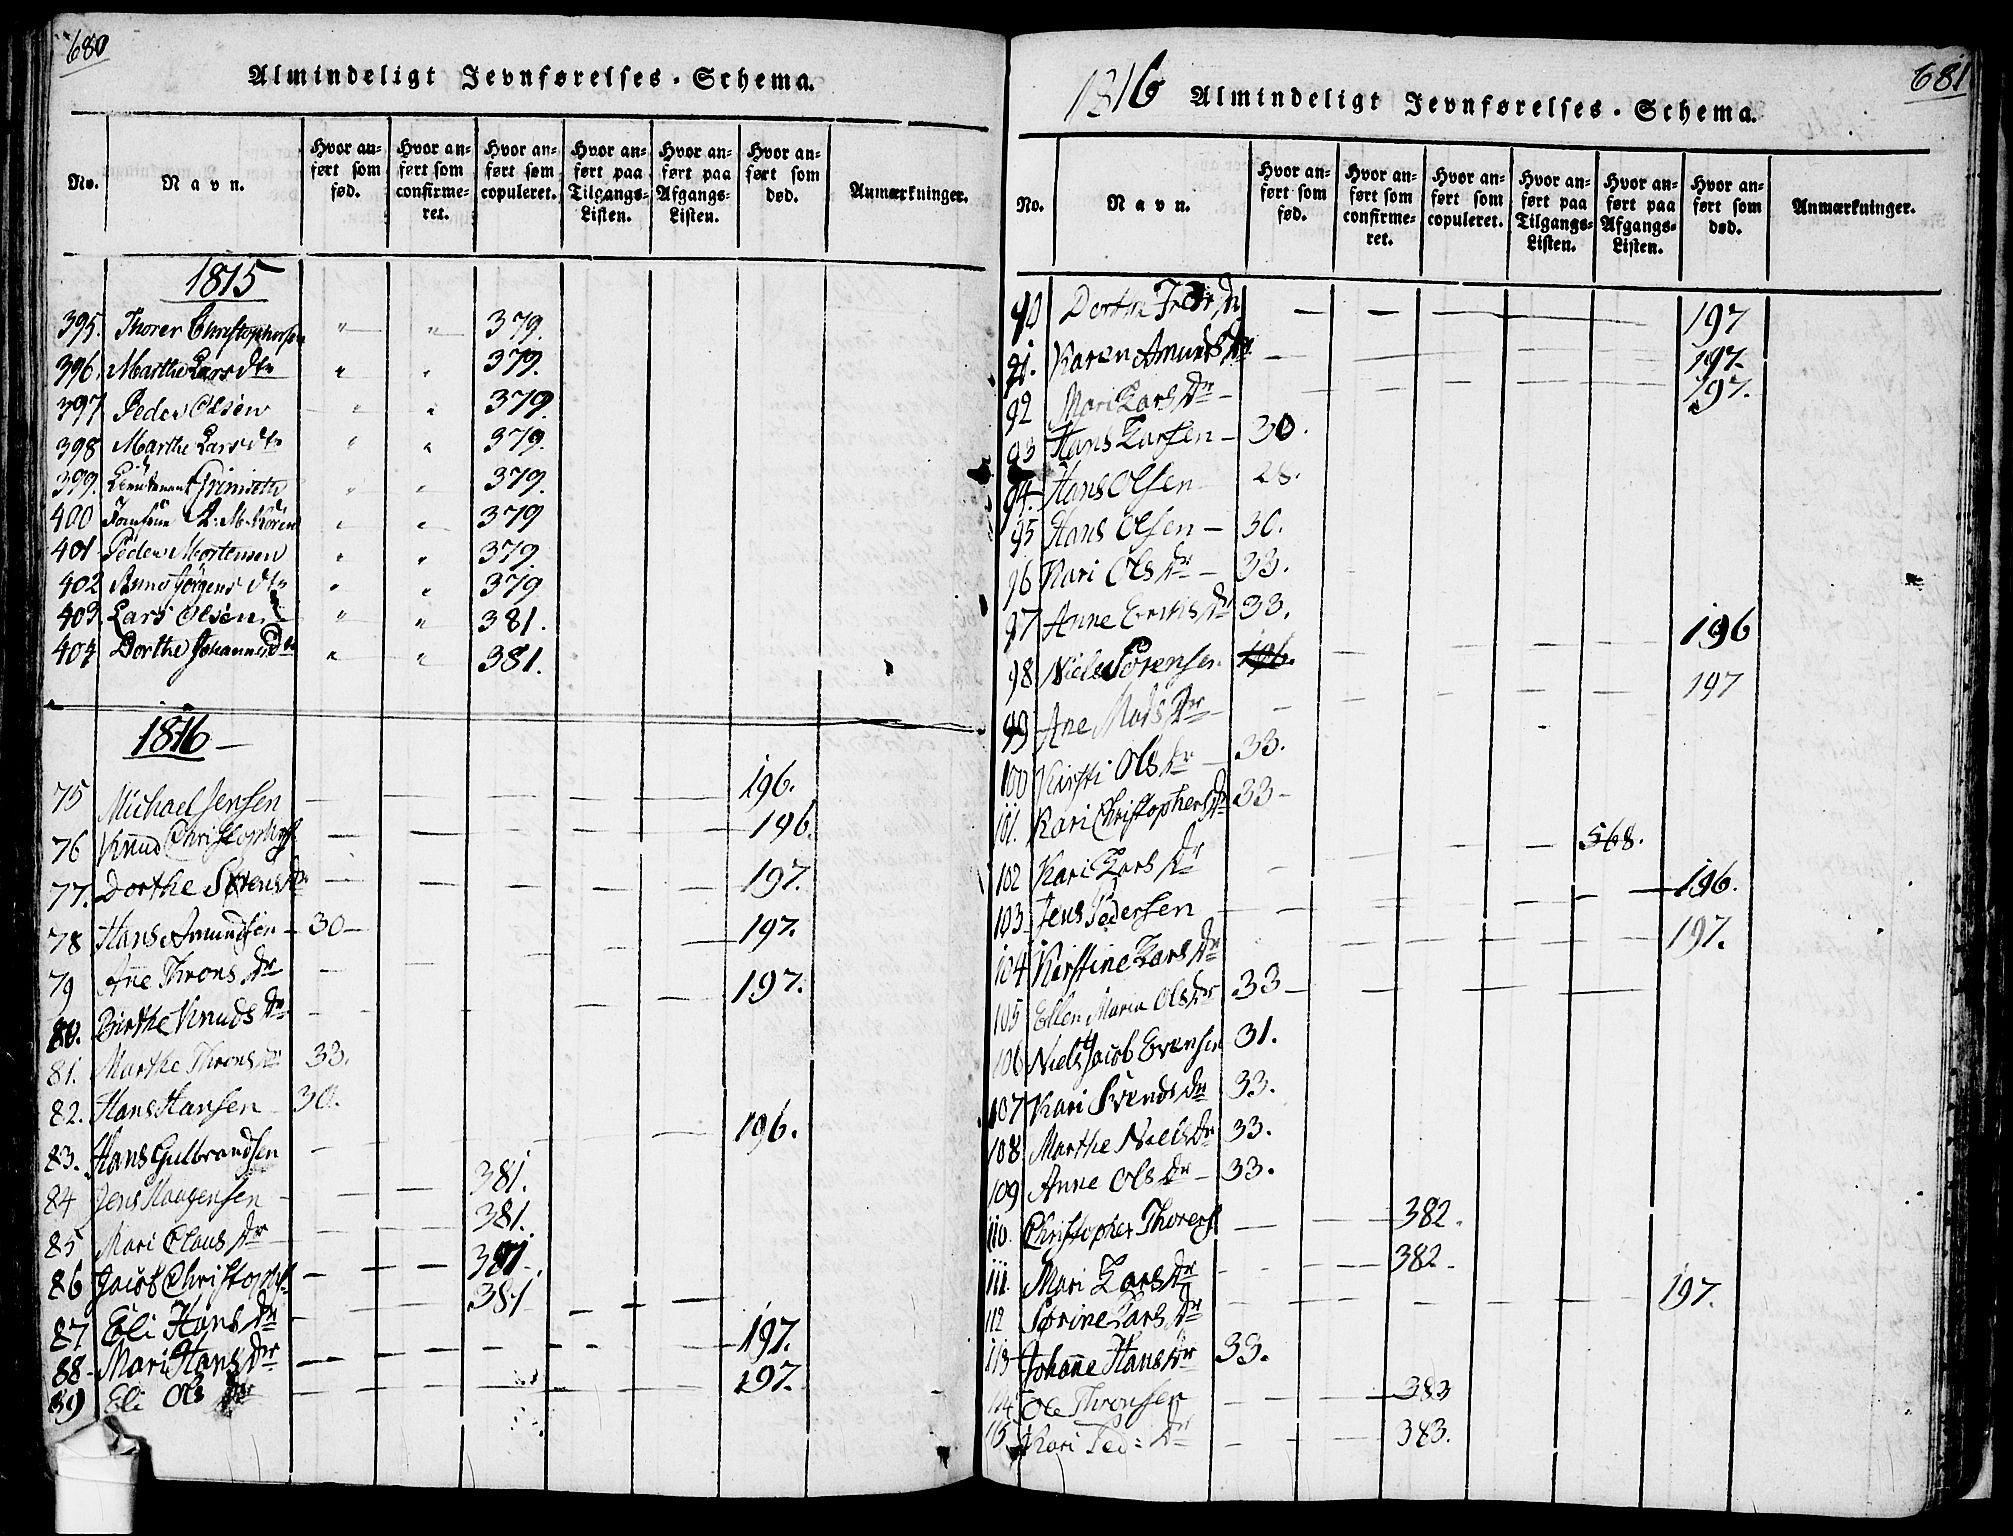 680
Almindeligt Jevnførelses-Schema.
No. Navn. Hvor anført som fød. Hvor anført som confirmeret. Hvor anført som copuleret. Hvor anført paa Tilgangs-Listen. Hvor anført paa Afgangs-Listen. Hvor anført som død. Anmærkninger.
1815
395. Thorer Christophersen " " 379.
396. Marthe Larsdtr " " 379.
397 Peder Olsen " " 379.
398 Marthe Larsdtr " " 379.
399. Lieutenant " " 379.
400 Jomfrue A. M. Koren " " 379
401 Peder Mortensen " " 379.
402 Anne Jørgensdtr " " 379
403. Lars Olsen " " 381.
404 Dorthe Johannesdtr " " 381.
1816
75 Michael Jensen — 196.
76 Knud Christophers — 196.
77. Dorthe Sørensdr — 197.
78 Hans Amundsen — 30 — 197.
79 Ane Throns Dr — 197.
80. Birthe Knuds Dr —
81. Marthe Throns Dr 33.
82. Hans Hansen 30.
83. Hans Gulbrandsen — 196.
84 Jens Haagensen — 381.
85 Mari Claus Dr — 381.
86 Jacob Christophs — 381.
87 Eli Hans Dr — 381
88 Mari Hans Dr — 197.
89 Eli Ols Dr — 197.
1816 Almindeligt Jevnførelses-Schema.
681
No. Navn. Hvor anført som fød. Hvor anført som confirmeret. Hvor anført som copuleret. Hvor anført paa Tilgangs-Listen. Hvor anført paa Afgangs-Listen. Hvor anført som død. Anmærkninger.
90 Dorthe Dr — 197
91. Karen Amunds Dr — 197.
92 Mari Lars Dr — 197.
93 Hans Larsen — 30.
94. Hans Olsen 28.
95 Hans Olsen — 30.
96 Kari Ols Dr — 33.
97 Anne Dr 33.
98 Niels Sørensen 196. — 196
99 Ane Mads Dr — 197
100 Kirsti Ols Dr — 33.
101. Kari Christophers Dr 33 —
102 Kari Lars Dr — 568.
103 Jens Pedersen — 196.
104 Kirstine Lars Dr — 197.
105 Ellen Maria Olsdr 33 —
106 Niels Jacob Evensen 31.
107 Kari Svends Dr 33.
108 Marthe Niels Dr 33.
109 Anne Ols Dr — 33.
110. Christopher Thorers — 382.
111. Mari Lars Dr — 382.
112 Sørine Lars Dr — 197.
113 Johane Hans Dr 33.
114 Ole Thronsen — 383
115 Kari Ped: Dr — 383.